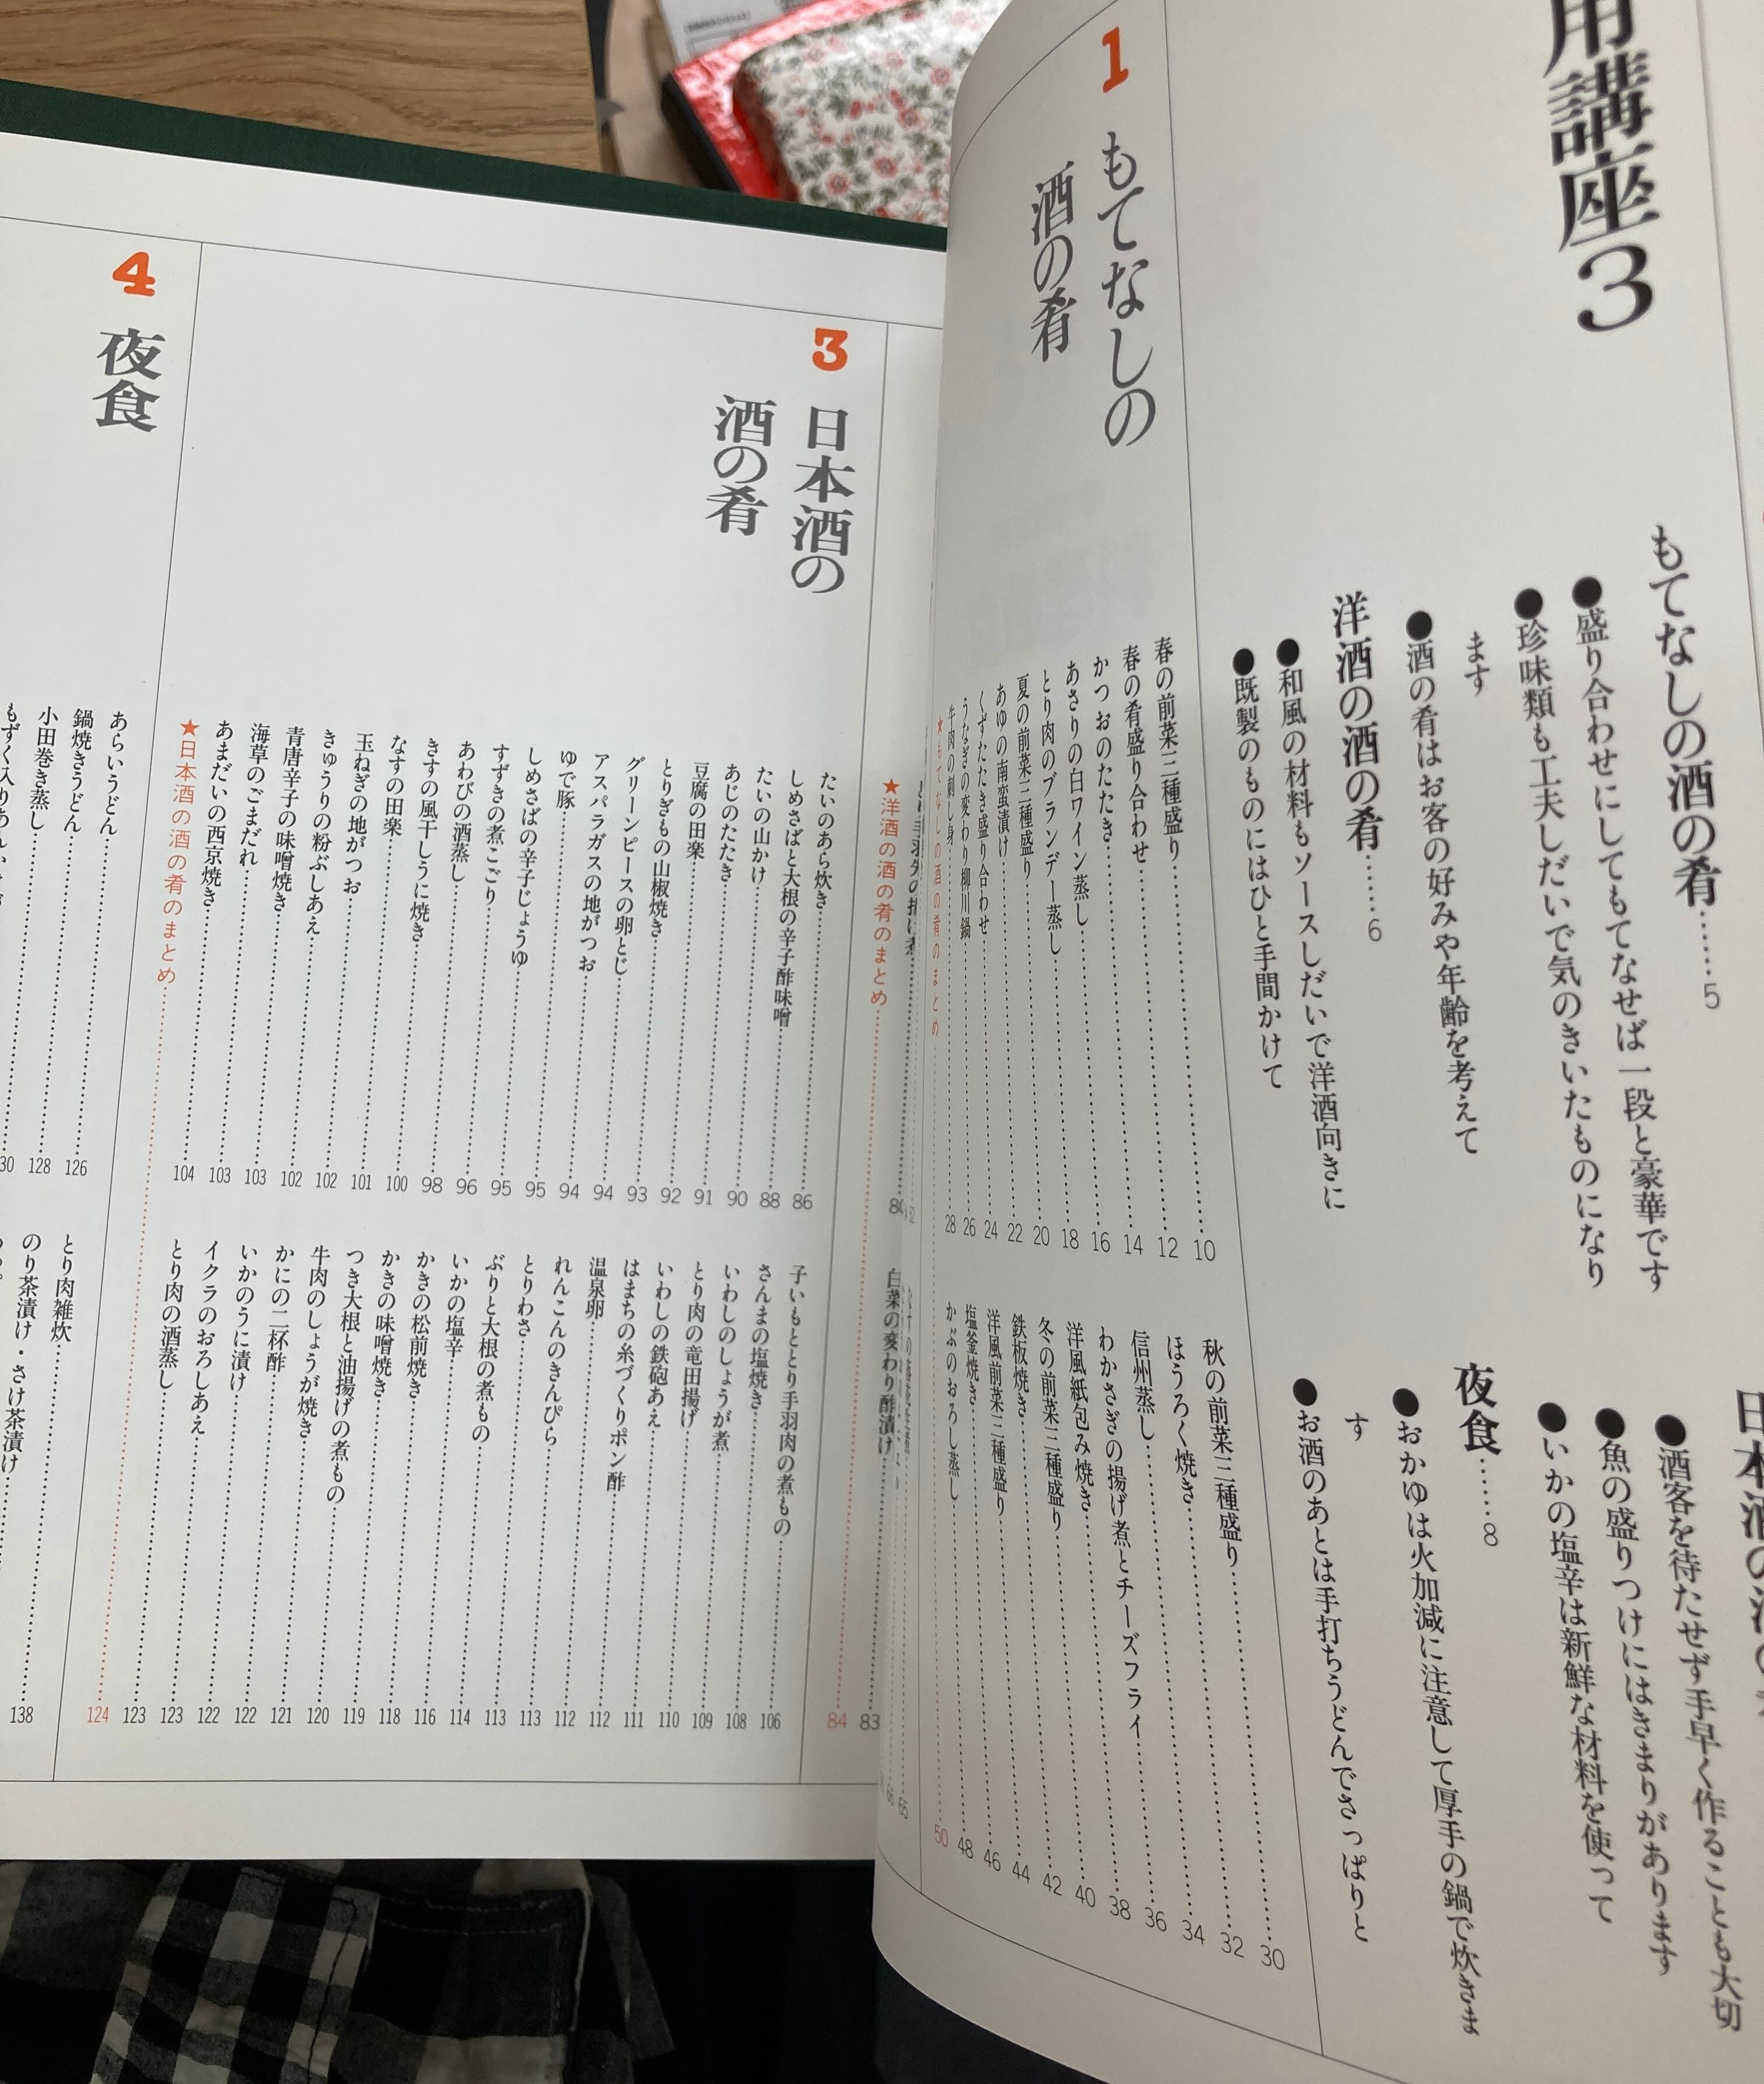 用講座3
もてなしの酒の肴……5
●盛り合わせにしてもてなせば一段と豪華です
●珍味類も工夫しだいで気のきいたものになり
ます
●酒の肴はお客の好みや年齢を考えて
洋酒の酒の肴……6
●和風の材料もソースしだいで洋酒向きに
●既製のものにはひと手間かけて
日本酒の
●酒客を待たせず手早く作ることも大切
●魚の盛りつけにはきまりがあります
●いかの塩辛は新鮮な材料を使って
夜食……8
●おかゆは火加減に注意して厚手の鍋で炊きま
す
●お酒のあとは手打ちうどんでさっぱりと
1
もてなしの
酒の肴
春の前菜三種盛り……10
春の肴盛り合わせ……12
かつおのたたき……14
あさりの白ワイン蒸し……16
とり肉のブランデー蒸し……18
夏の前菜三種盛り……20
あゆの南蛮漬け……22
くずたたき盛り合わせ……24
うなぎの変わり柳川鍋……26
牛肉の刺し身……28
秋の前菜三種盛り……30
ほうろく焼き……32
信州蒸し……34
わかさぎの揚げ煮とチーズフライ……36
洋風紙包み焼き……38
冬の前菜三種盛り……40
鉄板焼き……42
洋風前菜三種盛り……44
塩釜焼き……46
かぶのおろし蒸し……48
★もてなしの酒の肴のまとめ……50
白菜の変わり酢漬け……83
★洋酒の酒の肴のまとめ……84
3
日本酒の
酒の肴
たいのあら炊き……86
しめさばと大根の辛子酢味噌……88
たいの山かけ……90
あじのたたき……91
豆腐の田楽……92
とりぎもの山椒焼き……93
グリーンピースの卵とじ……94
アスパラガスの地がつお……94
ゆで豚……95
しめさばの辛子じょうゆ……95
すずきの煮こごり……96
あわびの酒蒸し……98
きすの風干しうに焼き……100
なすの田楽……101
玉ねぎの地がつお……102
きゅうりの粉ぶしあえ……102
青唐辛子の味噌焼き……103
海草のごまだれ……103
あまだいの西京焼き……104
子いもととり手羽肉の煮もの……106
さんまの塩焼き……108
いわしのしょうが煮……109
とり肉の竜田揚げ……110
いわしの鉄砲あえ……111
はまちの糸づくりポン酢……112
温泉卵……112
れんこんのきんぴら……113
とりわさ……113
ぶりと大根の煮もの……114
いかの塩辛……116
かきの松前焼き……118
かきの味噌焼き……119
つき大根と油揚げの煮もの……120
牛肉のしょうが焼き……121
かにの二杯酢……122
いかのうに漬け……122
イクラのおろしあえ……123
とり肉の酒蒸し……123
★日本酒の酒の肴のまとめ……124
4
夜食
あらいうどん……126
鍋焼きうどん……128
小田巻き蒸し……30
もずく入り
とり肉雑炊……138
のり茶漬け・さけ茶漬け